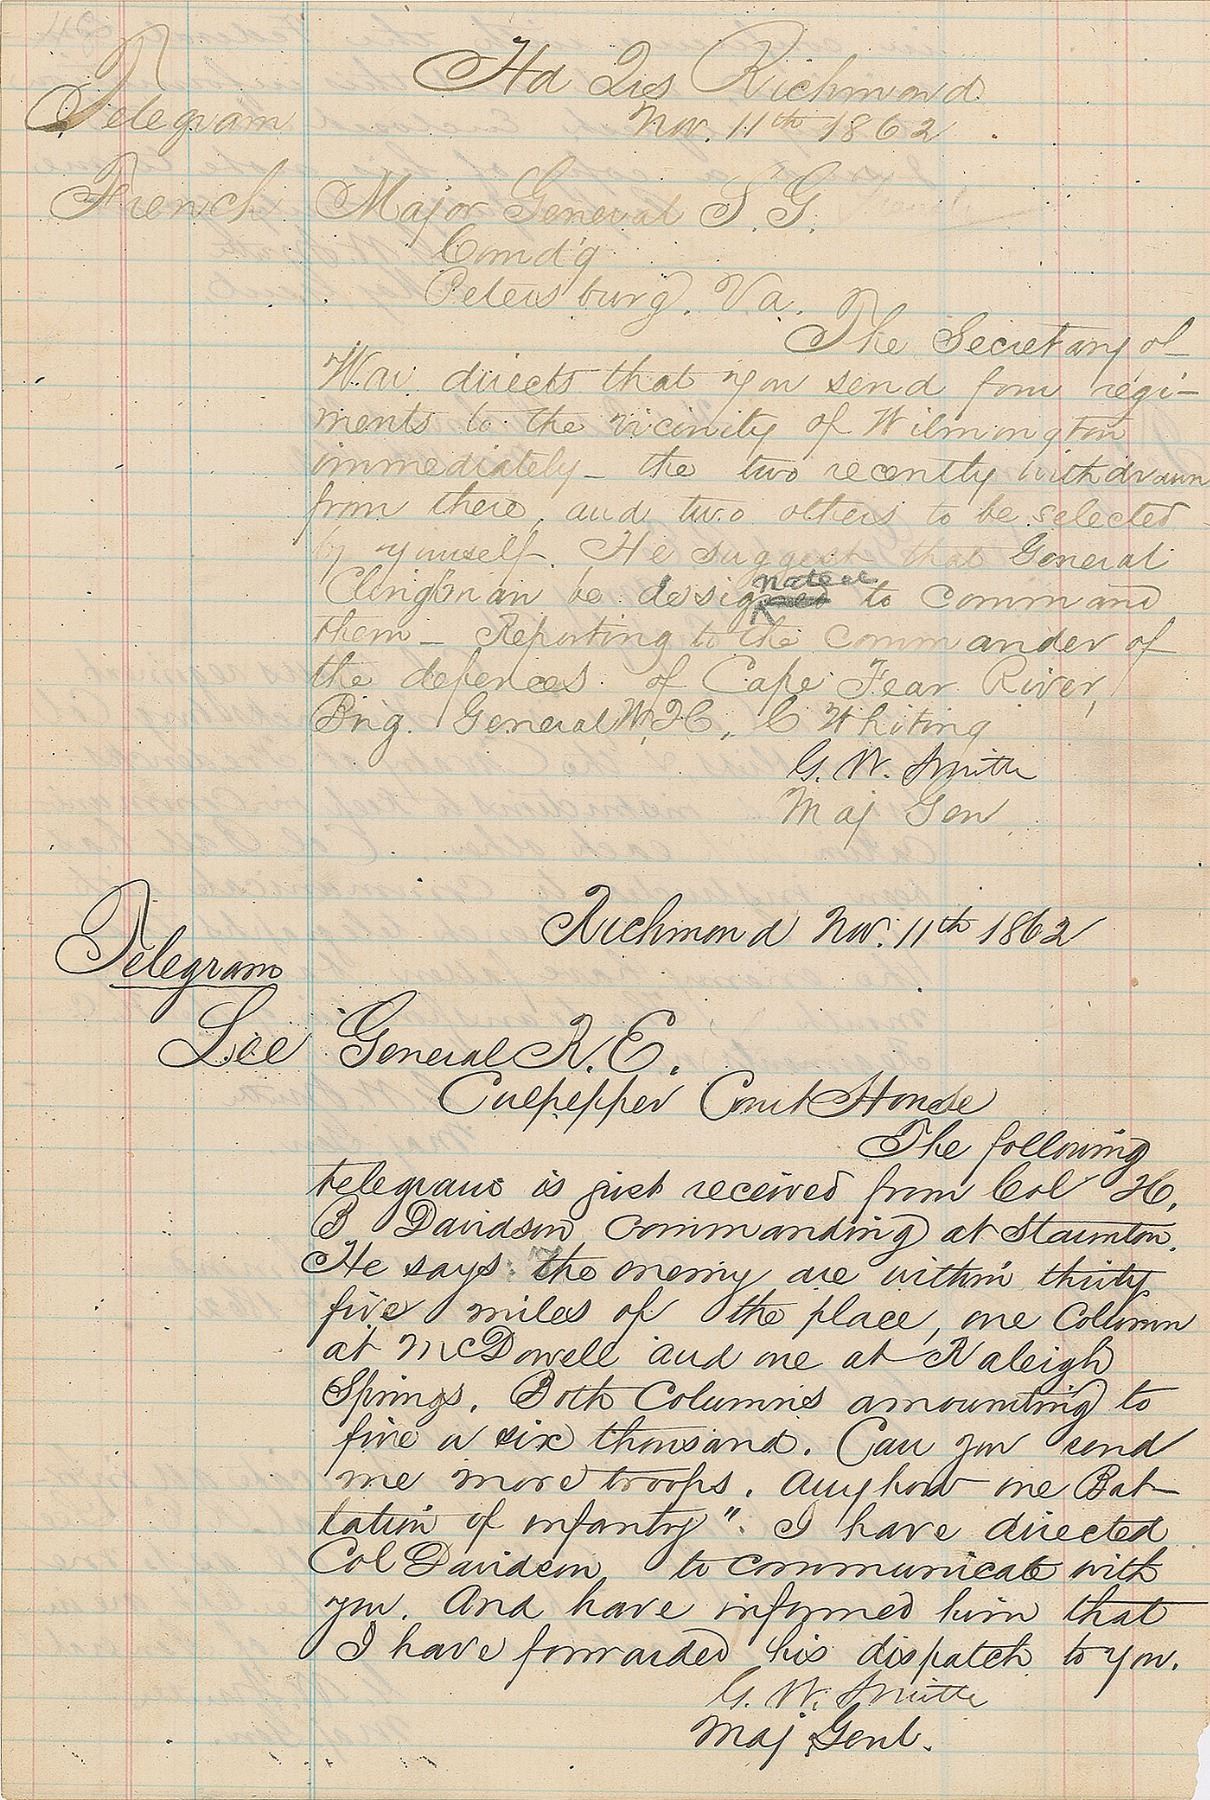 Telegram
Hd Qrs Richmond
Nov. 11th 1862.
French Major General S. G.
Comd'g
Petersburg. Va.
The Secretary of
War directs that you send four regi-
ments to the vicinity of Wilmington
immediately - the two recently withdrawn
from there, and two others to be selected
by yourself. He suggest that General
Clingman be desig nated to command
them - Reporting to the Commander of
the defences of Cape Fear River,
Brig. General W. H. C Whiting
G. W. Smith
Maj Gen
Richmond Nov. 11th 1862
Telegram
Lee General R. E.
Culpepper Court House
The following
telegram is just received from Col H.
B Davidson commanding at Staunton.
He says the enemy are within thirty
five miles of the place, one Column
at McDowell and one at Raleigh
Springs. Both Columns amounting to
five or six thousand. Can you send
me more troops. Anyhow one Bat-
talion of infantry". I have directed
Col Davidson to communicate with
you. And have informed him that
I have forwarded his dispatch to you.
G. W. Smith
Maj Genl.